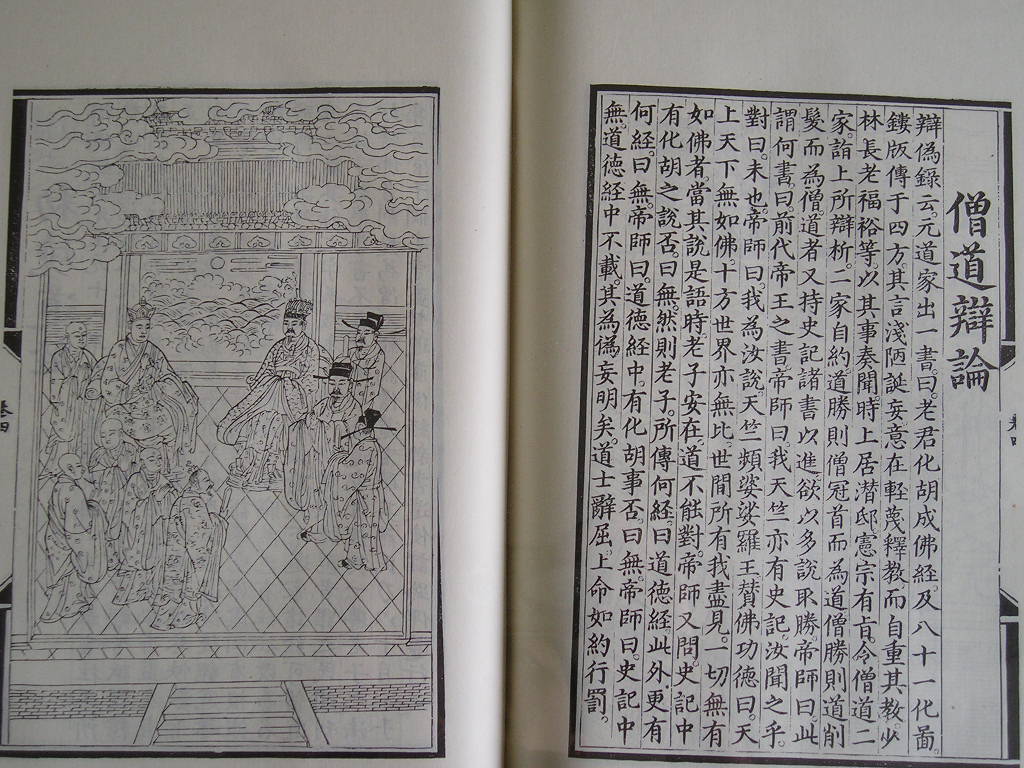 僧道辯論
辯偽錄云。元道家出一書。曰。老君化胡成佛經及八十一化圖。
鏤版傳于四方。其言淺陋誕妄。意在輕蔑釋教而自重其教。少
林長老福裕等以其事奏聞。時上居潛邸。憲宗有旨。令僧道二
家。詣上所辯析。二家自約。道勝則僧冠首而為道。僧勝則道削
髮而為僧。道者又持史記諸書以進。欲以多說取勝。帝師曰。此
謂何書。曰前代帝王之書。帝師曰。我天竺亦有史記。汝聞之乎。
對曰。未也。帝師曰。我為汝說。天竺頻婆娑羅王贊佛功德曰。天
上天下無如佛。十方世界亦無比。世間所有我盡見。一切無有
如佛者。當其說是語時。老子安在。道不能對。帝師又問。史記中
有化胡之說否。曰無。然則老子。所傳何經。曰道德經。此外更有
何經。曰無。帝師曰。道德經中。有化胡事否。曰無。帝師曰。史記中
無。道德經中不載。其為偽妄明矣。道士辭屈。上命如約行罰。
卷四